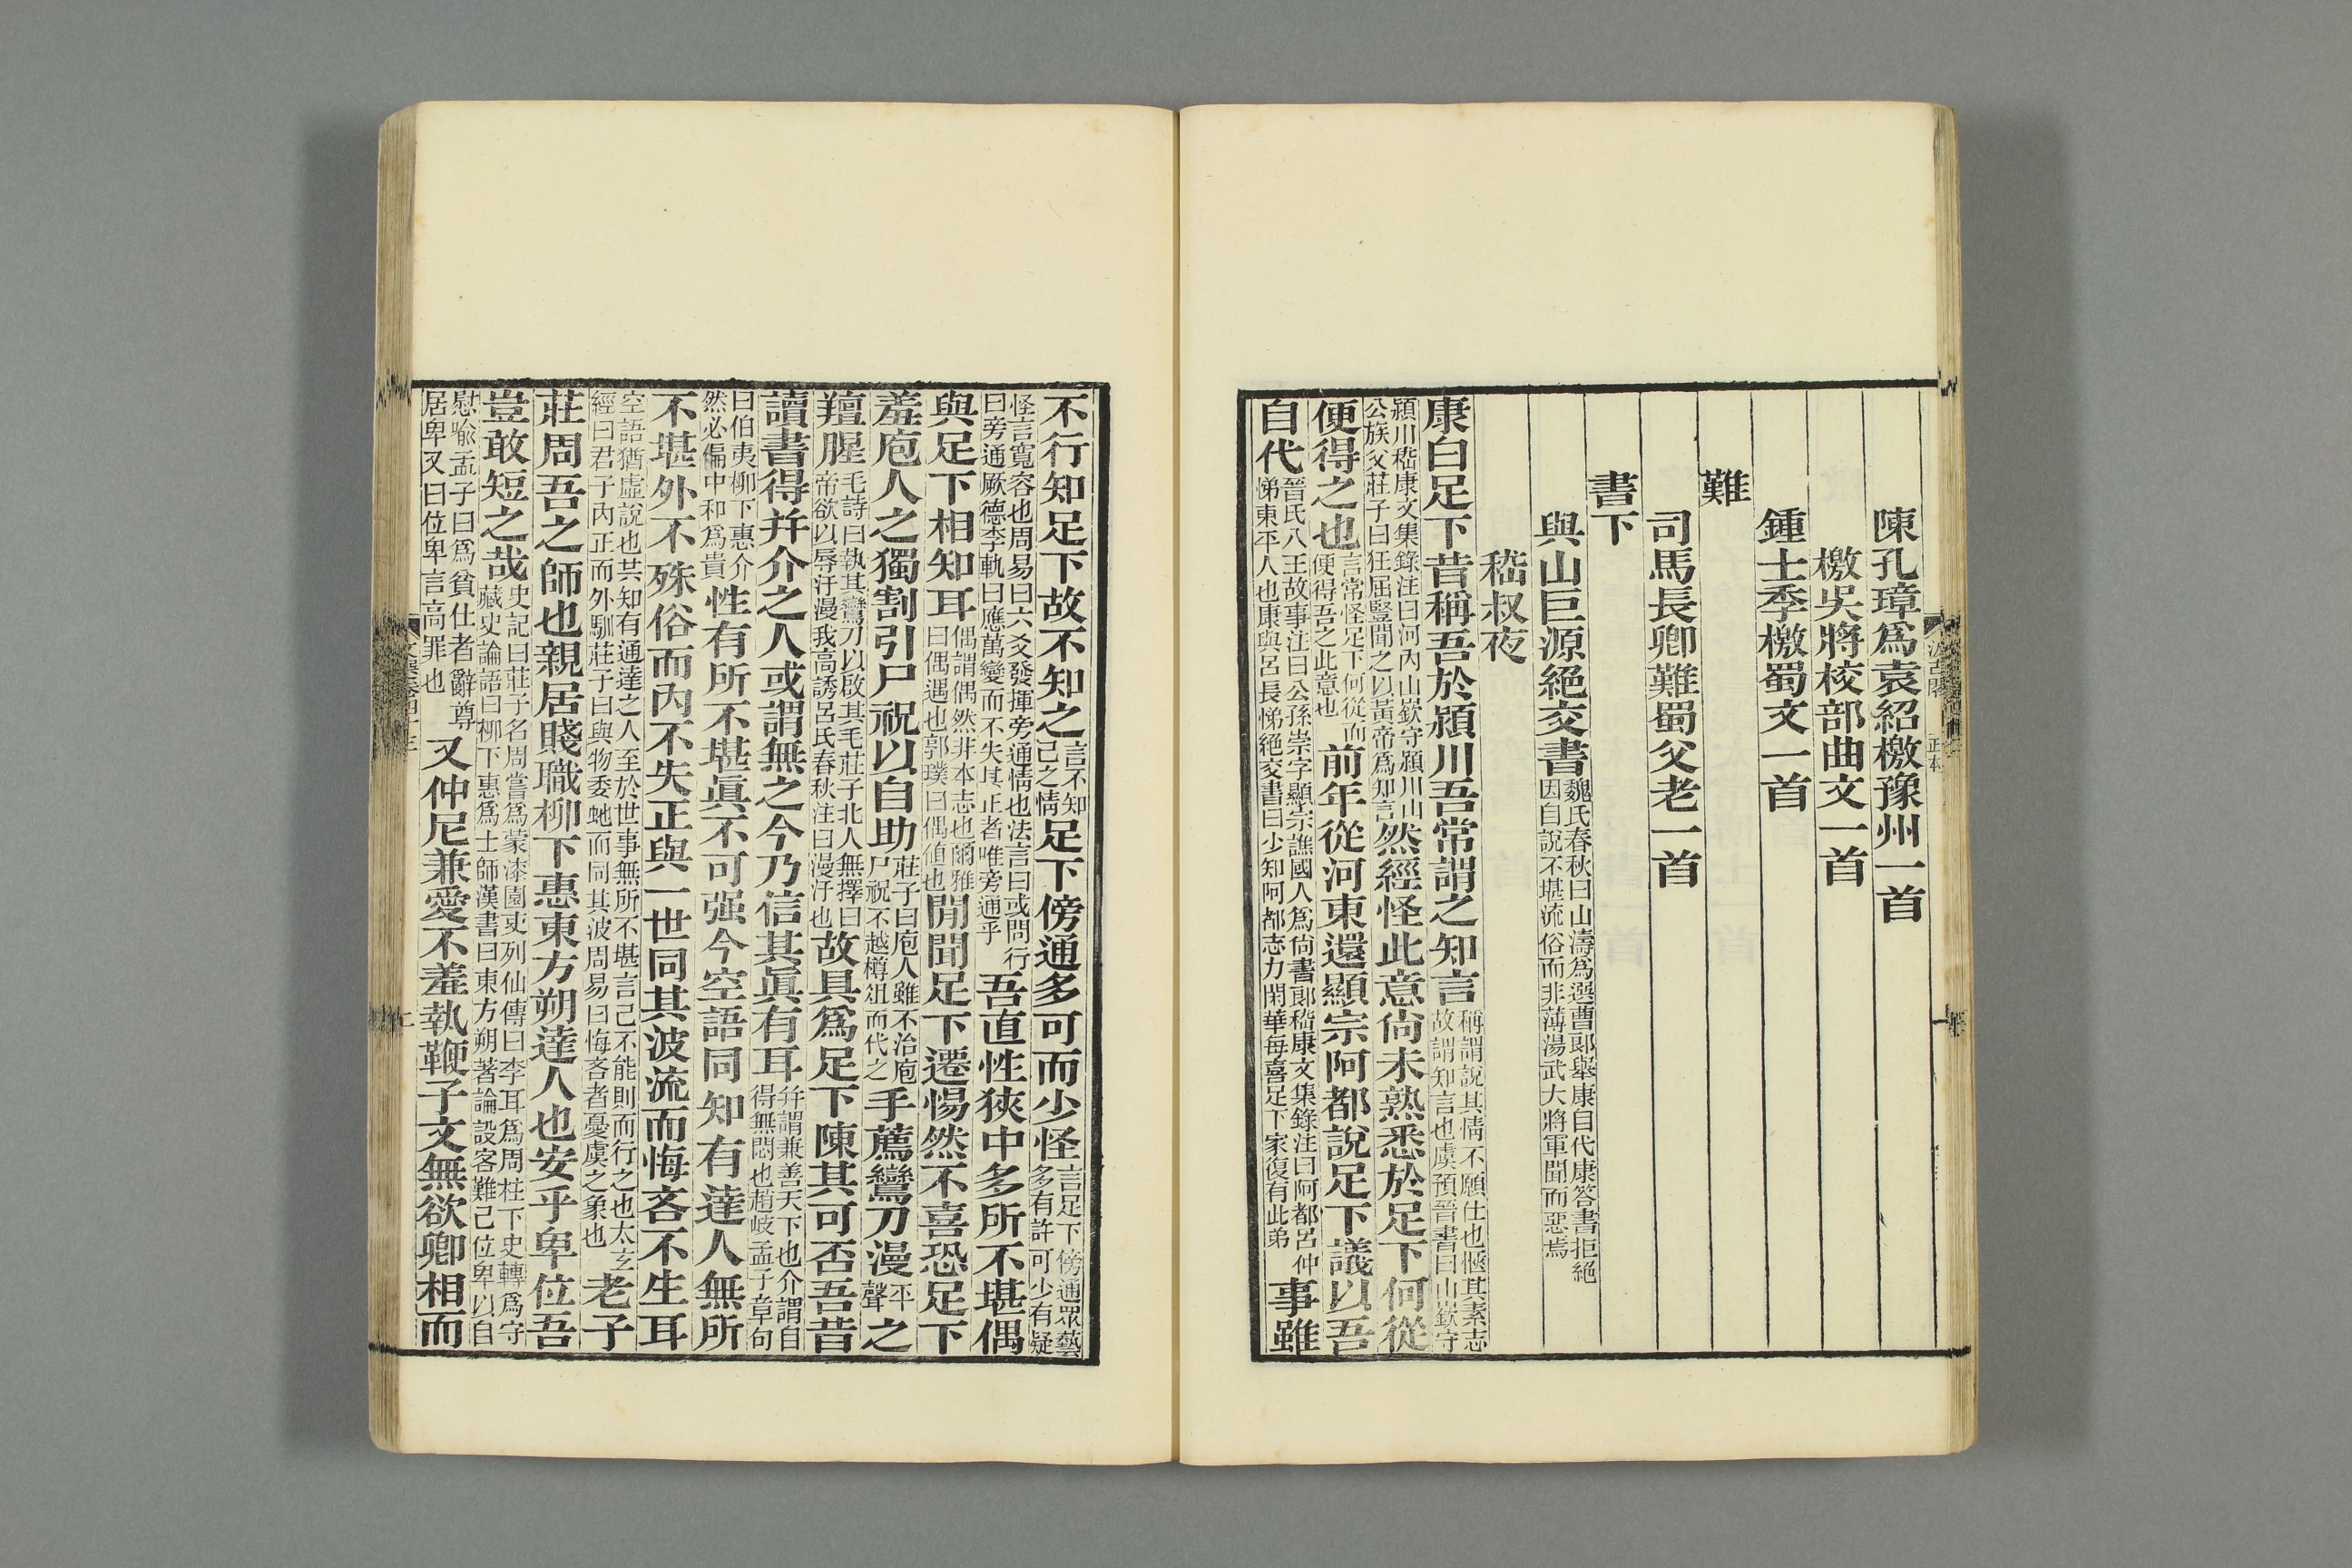 陳孔璋爲袁紹檄豫州一首
檄吳將校部曲文一首
鍾士季檄蜀文一首
難
司馬長卿難蜀父老一首
書下
與山巨源絕交書魏氏春秋曰山濤爲選曹郞舉康自代康答書拒絕因自說不堪流俗而非薄湯武大將軍聞而惡焉
嵇叔夜
康白足下昔稱吾於潁川吾常謂之知言稱謂說其情不願仕也愜其素志故謂知言也虞預晉書曰山嶔守
潁川嵇康文集錄注曰河內山嶔守潁川山公族父莊子曰狂屈豎聞之以黃帝爲知言然經怪此意尙未熟悉於足下何從
便得之也言常怪足下何從而便得吾之此意也前年從河東還顯宗阿都說足下議以吾
自代晉氏八王故事注曰公孫崇字顯宗譙國人爲尙書郞嵇康文集錄注曰阿都呂仲悌東平人也康與呂長悌絕交書曰少知阿都志力閑華每喜足下家復有此弟事雖
不行知足下故不知之言不知己之情足下傍通多可而少怪言足下傍通眾藝多有許可少有疑
怪言寬容也周易曰六爻發揮旁通情也法言曰或問行曰旁通厥德李軌曰應萬變而不失其正者唯旁通乎吾直性狹中多所不堪偶
與足下相知耳偶謂偶然非本志也爾雅曰偶遇也郭璞曰偶値也閒聞足下遷惕然不喜恐足下
羞庖人之獨割引尸祝以自助莊子曰庖人雖不治庖尸祝不越樽俎而代之手薦鸞刀漫平聲之
羶腥毛詩曰執其鸞刀以啟其毛莊子北人無擇曰帝欲以辱汙漫我高誘呂氏春秋注曰漫汙也故具爲足下陳其可否吾昔
讀書得幷介之人或謂無之今乃信其眞有耳幷謂兼善天下也介謂自得無悶也趙岐孟子章句
曰伯夷柳下惠介然必偏中和爲貴性有所不堪眞不可强今空語同知有達人無所
不堪外不殊俗而內不失正與一世同其波流而悔吝不生耳
空語猶虛說也共知有通達之人至於世事無所不堪言己不能則而行之也太玄經曰君子內正而外馴莊子曰與物委虵而同其波周易曰悔吝者憂虞之象也老子
莊周吾之師也親居賤職柳下惠東方朔達人也安乎卑位吾
豈敢短之哉史記曰莊子名周嘗爲蒙漆園吏列仙傳曰李耳爲周柱下史轉爲守藏史論語曰柳下惠爲士師漢書曰東方朔著論設客難己位卑以自
慰喩孟子曰爲貧仕者辭尊居卑又曰位卑言高罪也又仲尼兼愛不羞執鞭子文無欲卿相而